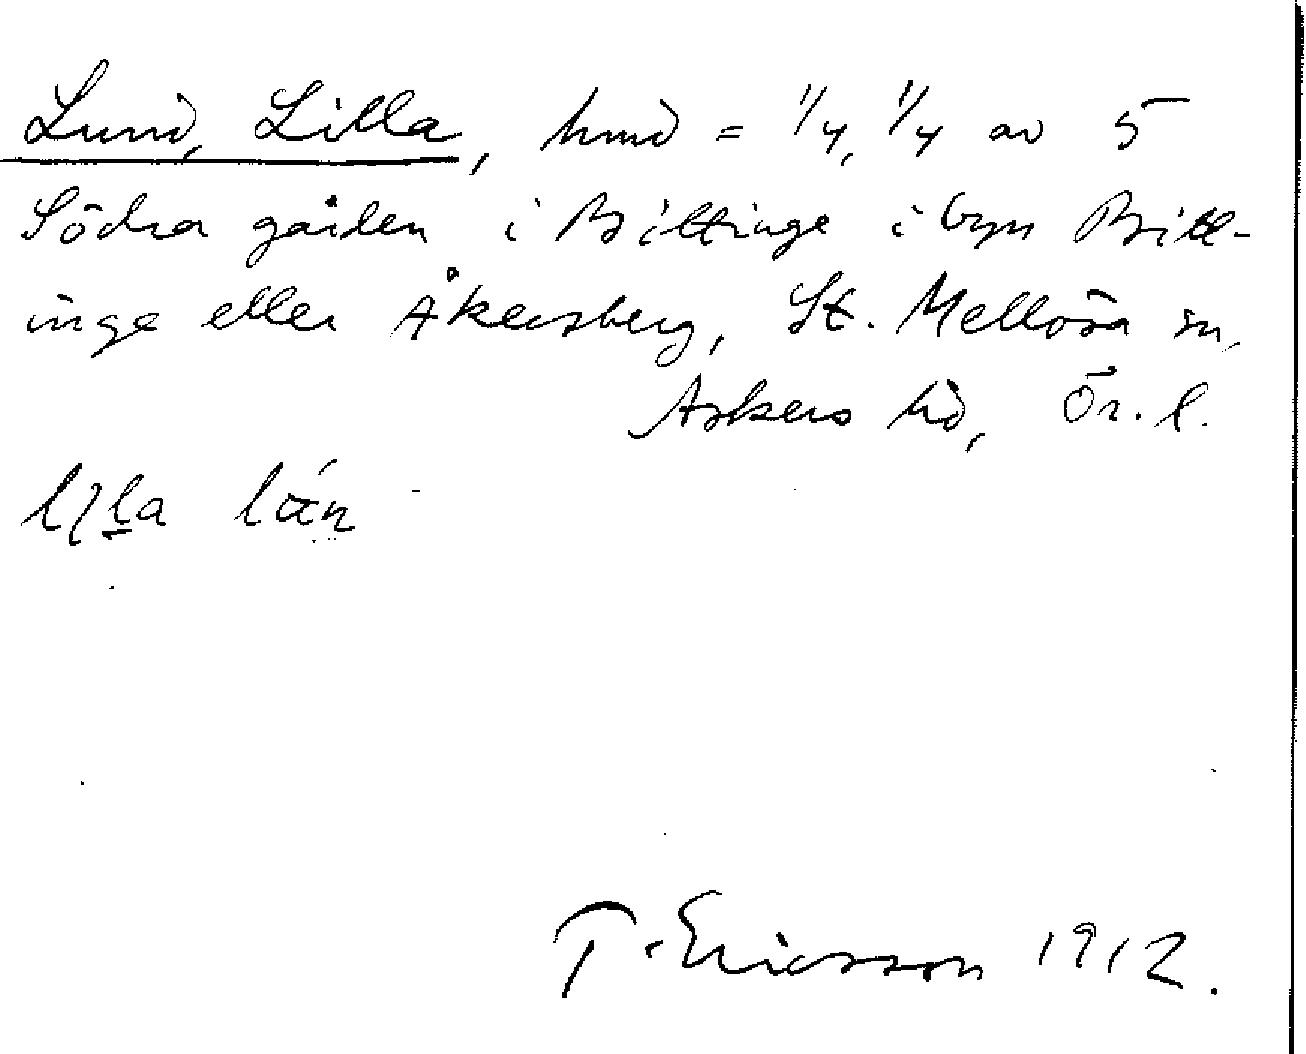 Lund, Lilla, hmd = 1/4, 1/4 av 5
Södra gården i Bittinge i byn Bitt-
inge eller Åkersberg, St. Mellösa sn,
Askers hd, Ör. l.
T. Ericsson 1912.